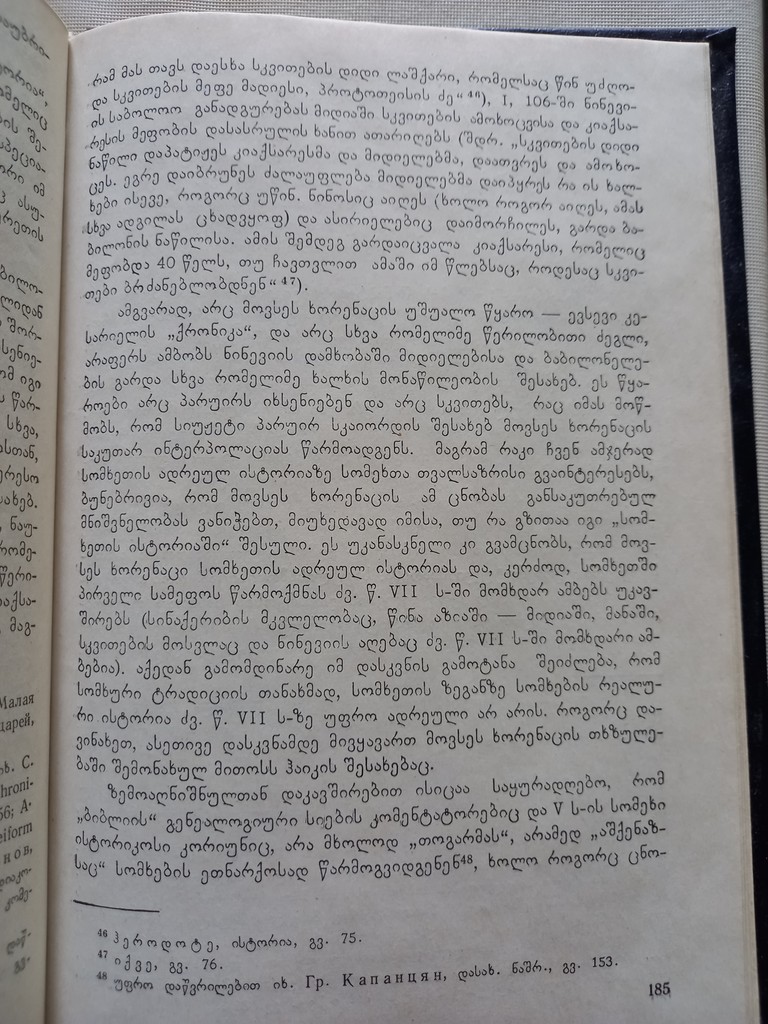 რამ მას თავს დაესხა სკვითების დიდი ლაშქარი, რომელსაც წინ უძღო-
და სკვითების მეფე მადიესი, პროტოთეისის ძე“⁴⁶), I, 106-ში ნინევი-
ის საბოლოო განადგურებას მიდიაში სკვითების ამოხოცვისა და კიაქსა-
რესის მეფობის დასასრულის ხანით ათარიღებს (შდრ. „სკვითების დიდი
ნაწილი დაპატიჟეს კიაქსარესმა და მიდიელებმა, დაათვრეს და ამოხო-
ცეს. ეგრე დაიბრუნეს ძალაუფლება მიდიელებმა დაიპყრეს რა ის ხალ-
ხები ისევე, როგორც უწინ. ნინოსიც აიღეს (ხოლო როგორ აიღეს, ამას
სხვა ადგილას ცხადვყოფ) და ასირიელებიც დაიმორჩილეს, გარდა ბა-
ბილონის ნაწილისა. ამის შემდეგ გარდაიცვალა კიაქსარესი, რომელიც
მეფობდა 40 წელს, თუ ჩავთვლით ამაში იმ წლებსაც, როდესაც სკვი-
თები ბრძანებლობდნენ“⁴⁷).
ამგვარად, არც მოვსეს ხორენაცის უშუალო წყარო — ევსევი კე-
სარიელის „ქრონიკა“, და არც სხვა რომელიმე წერილობითი ძეგლი,
არაფერს ამბობს ნინევიის დამხობაში მიდიელებისა და ბაბილონელე-
ბის გარდა სხვა რომელიმე ხალხის მონაწილეობის შესახებ. ეს წყა-
როები არც პარუირს იხსენიებენ და არც სკვითებს, რაც იმას მოწ-
მობს, რომ სიუჟეტი პარუირ სკაიორდის შესახებ მოვსეს ხორენაცის
საკუთარ ინტერპოლაციას წარმოადგენს. მაგრამ რაკი ჩვენ ამჯერად
სომხეთის ადრეულ ისტორიაზე სომეხთა თვალსაზრისი გვაინტერესებს,
ბუნებრივია, რომ მოვსეს ხორენაცის ამ ცნობას განსაკუთრებულ
მნიშვნელობას ვანიჭებთ, მიუხედავად იმისა, თუ რა გზითაა იგი „სომ-
ხეთის ისტორიაში“ შესული. ეს უკანასკნელი კი გვამცნობს, რომ მოვ-
სეს ხორენაცი სომხეთის ადრეულ ისტორიას და, კერძოდ, სომხეთში
პირველი სამეფოს წარმოქმნას ძვ. წ. VII ს-ში მომხდარ ამბებს უკავ-
შირებს (სინაქერიბის მკვლელობაც, წინა აზიაში — მიდიაში, მანაში,
სკვითების მოსვლაც და ნინევიის აღებაც ძვ. წ. VII ს-ში მომხდარი ამ-
ბებია). აქედან გამომდინარე იმ დასკვნის გამოტანა შეიძლება, რომ
სომხური ტრადიციის თანახმად, სომხეთის ზეგანზე სომხების რეალუ-
რი ისტორია ძვ. წ. VII ს-ზე უფრო ადრეული არ არის. როგორც და-
ვინახეთ, ასეთივე დასკვნამდე მივყავართ მოვსეს ხორენაცის თხზულე-
ბაში შემონახულ მითოსს ჰაიკის შესახებაც.
ზემოაღნიშნულთან დაკავშირებით ისიცაა საყურადღებო, რომ
„ბიბლიის“ გენეალოგიური სიების კომენტატორებიც და V ს-ის სომეხი
ისტორიკოსი კორიუნიც, არა მხოლოდ „თოგარმას“, არამედ „აშქენაზ-
საც“ სომხების ეთნარქოსად წარმოგვიდგენენ⁴⁸, ხოლო როგორც ცნო-
⁴⁶ ჰეროდოტე, ისტორია, გვ. 75.
⁴⁷ იქვე, გვ. 76.
⁴⁸ უფრო დაწვრილებით იხ. Гр. Капанцян, დასახ. ნაშრ., გვ. 153.
185